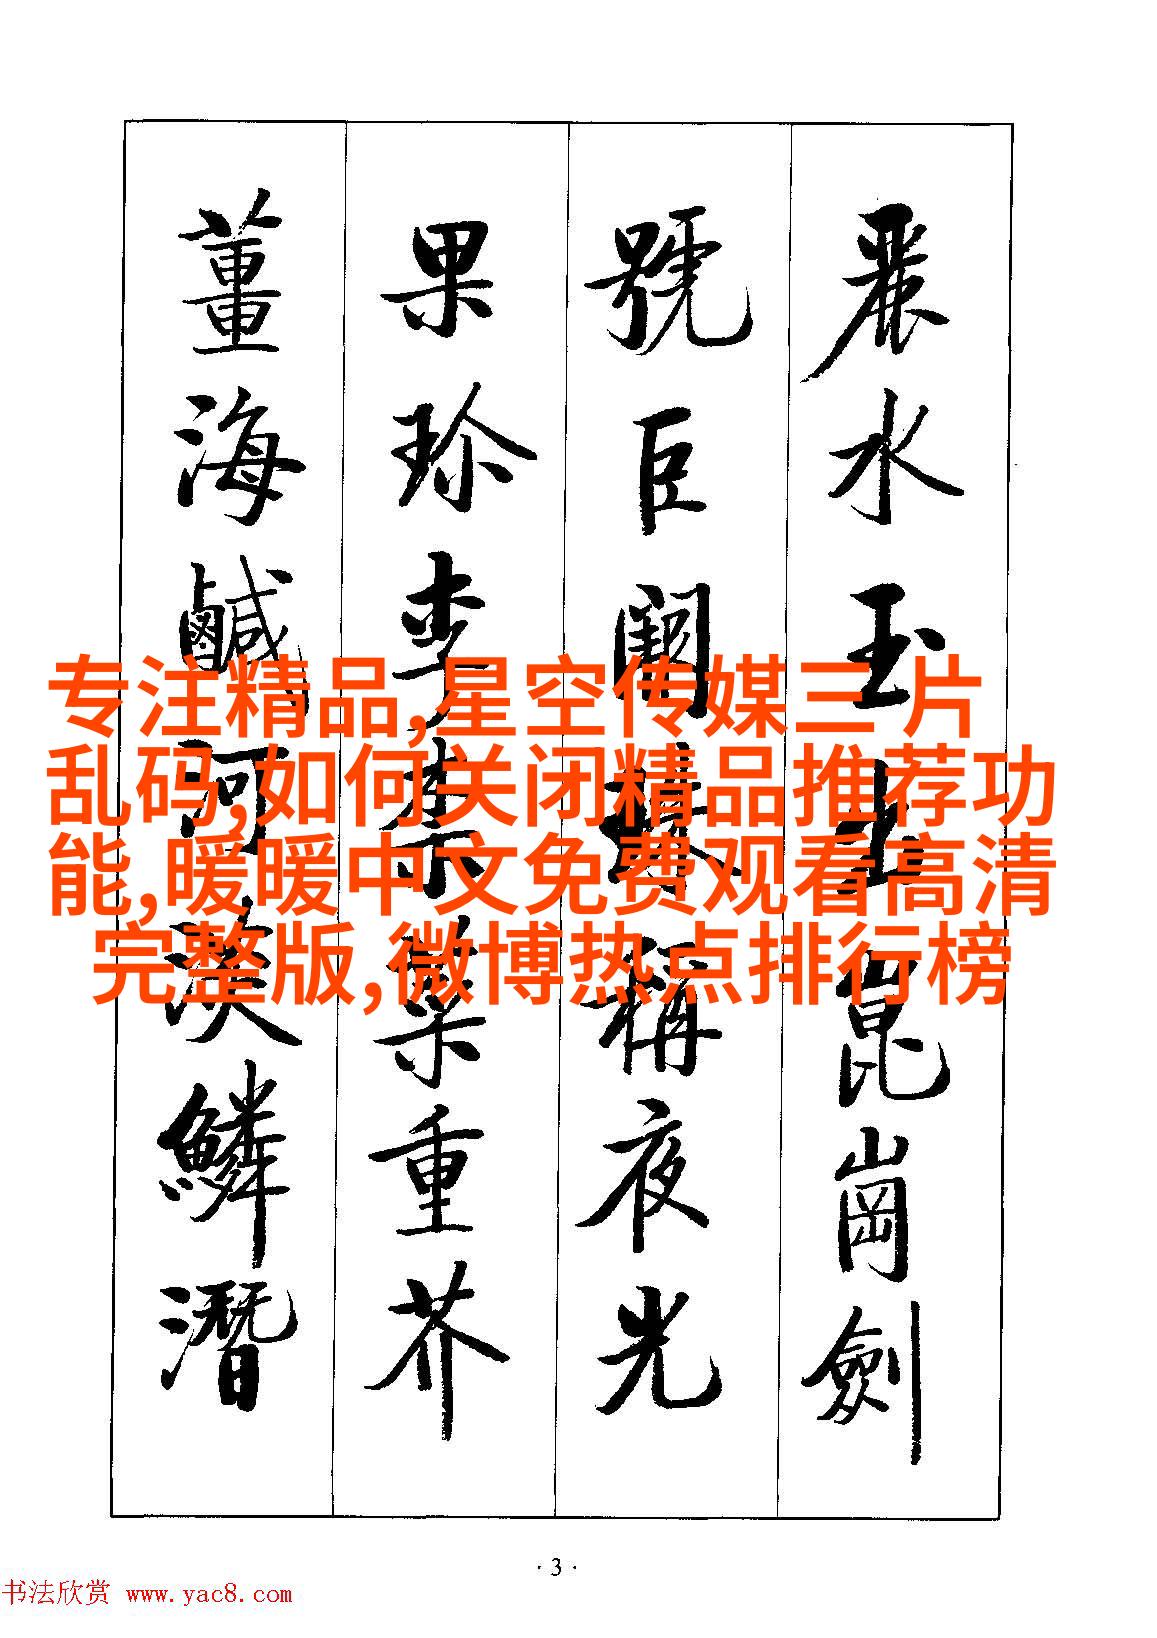 麗水玉出崑崗劍
號巨闕珠稱夜光
果珍李柰菜重芥
薑海鹹河淡鱗潛
专注精品,星空传媒三 片
乱码,如何关闭精品推荐功
能,暖暖中文免费观看高清
完整版,微博热点排行榜
· 3 ·
书法欣赏 www.yac8.com